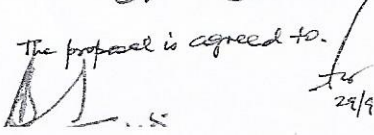 The proposal is agreed to.
29/9